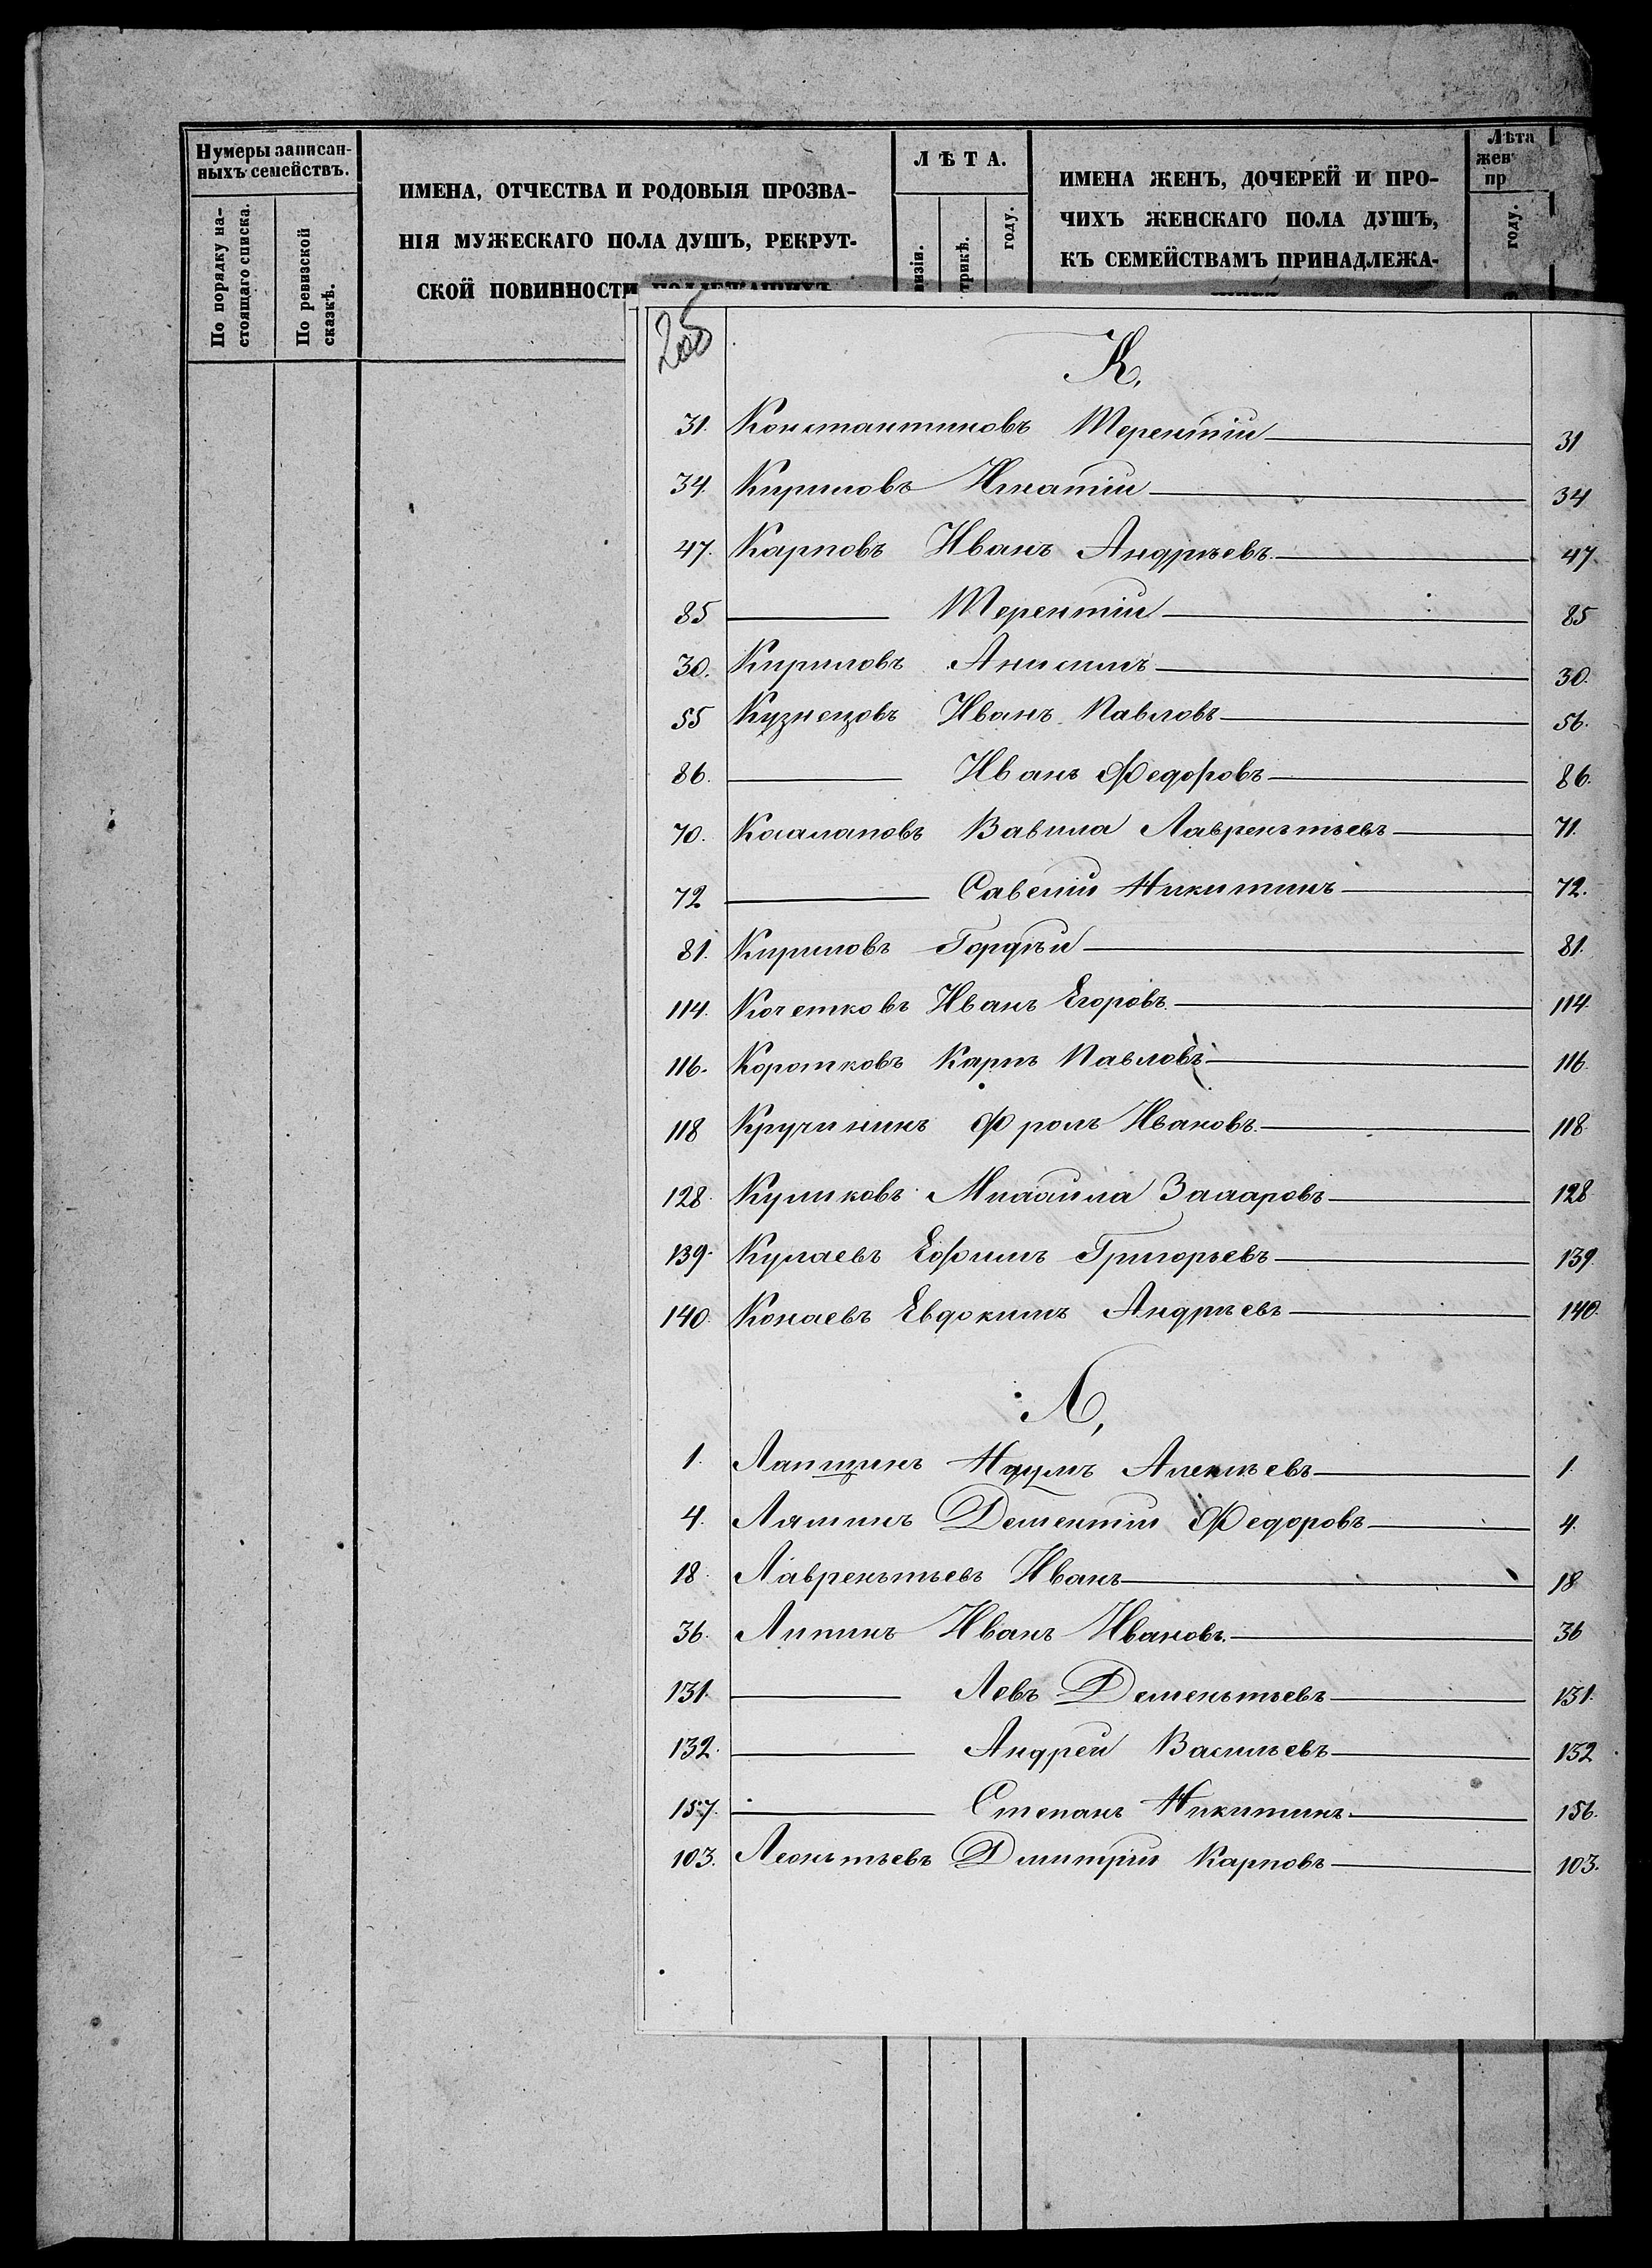 Нумеры записан-
ныхъ семействъ.
По порядку на-
стоящаго списка.
По ревизской
сказкѣ.
ИМЕНА, ОТЧЕСТВА И РОДОВЫЯ ПРОЗВА-
НІЯ МУЖЕСКАГО ПОЛА ДУШЪ, РЕКРУТ-
СКОЙ ПОВИННОСТИ ПОДЛЕЖАЩИХЪ
ЛѢТА.
году.
ИМЕНА ЖЕНЪ, ДОЧЕРЕЙ И ПРО-
ЧИХЪ ЖЕНСКАГО ПОЛА ДУШЪ,
КЪ СЕМЕЙСТВАМЪ ПРИНАДЛЕЖА-
Лѣта
жен
пр
году.
К,
31. Константиновъ Терентій 31
34. Кириловъ Игнатій 34
47. Карповъ Иванъ Андрѣевъ. 47.
85 Терентій 85
30. Кириловъ Анисимъ 30.
55 Кузнецовъ Иванъ Павловъ 56.
86. Иванъ Федоровъ 86.
70. Вавила Лаврентьевъ 71.
72 Савелій Никитинъ 72.
81. Кириловъ Гордѣй 81.
114. Кочетковъ Иванъ Егоровъ. 114.
116. Коротковъ Карпъ Павловъ 116.
118 Кручининъ Фролъ Ивановъ. 118.
128. Куликовъ Михаила Захаровъ 128
139. Кулаевъ Ефимъ Григорьевъ 139.
140. Конаевъ Евдокимъ Андрѣевъ 140.
Л,
1. Лапшинъ Наумъ Алексѣевъ 1.
4. Ляминъ Дементій Федоровъ 4.
18. Лаврентьевъ Иванъ 18
36. Липинъ Иванъ Ивановъ. 36
131. Левъ Дементьевъ 131.
132. Андрей Васильевъ 132
157. Степанъ Никитинъ. 156.
103. Леонтьевъ Дмитрій Карповъ 103.